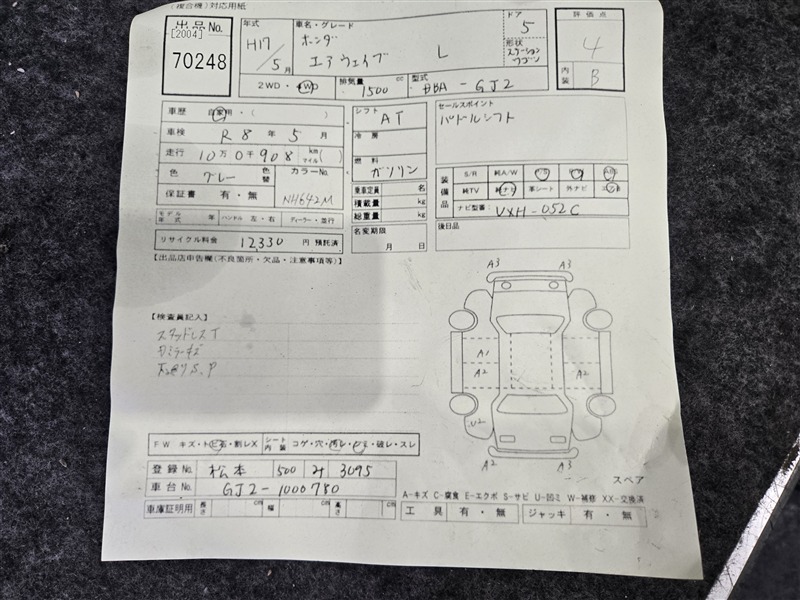 (複合機)対応用紙
出品No.
[2004]
70248
年式
H17/5月
車名・グレード
ホンダ
エアウェイブ L
ドア
5
形状
ステーションワゴン
評価点
4
内装
B
2WD・4WD
排気量 1500 cc
型式 DBA-GJ2
車歴 自家用・( )
車検 R8年5月
走行 10万0千908 km マイル( )
色 グレー 色替
カラーNo. NH642M
保証書 有・無
モデル年式 年 ハンドル 左・右 ディーラー・並行
リサイクル料金 12,330 円 預託済
シフト AT
冷房
燃料 ガソリン
乗車定員 名
積載量 kg
総重量 kg
名変期限
月 日
セールスポイント
パドルシフト
装備品
S/R 純A/W P/S P/W ABS
純TV 純ナビ 革シート 外ナビ エアB
ナビ型番 VXH-052C
後日品
【出品店申告欄(不良箇所・欠品・注意事項等)】
【検査員記入】
スタッドレスT
S,P
A3 A3
A1
A2 A2
U2
A2 A3
FW キズ・トビ石・割レX
シート内装 コゲ・穴・汚レ・シミ・破レ・スレ
登録No. 松本 500 み 3095
車台No. GJ2-1000780
車庫証明用 長さ cm 幅 cm 高さ cm
スペア
A-キズ C-腐食 E-エクボ S-サビ U-凹ミ W-補修 XX-交換済
工具 有・無 ジャッキ 有・無